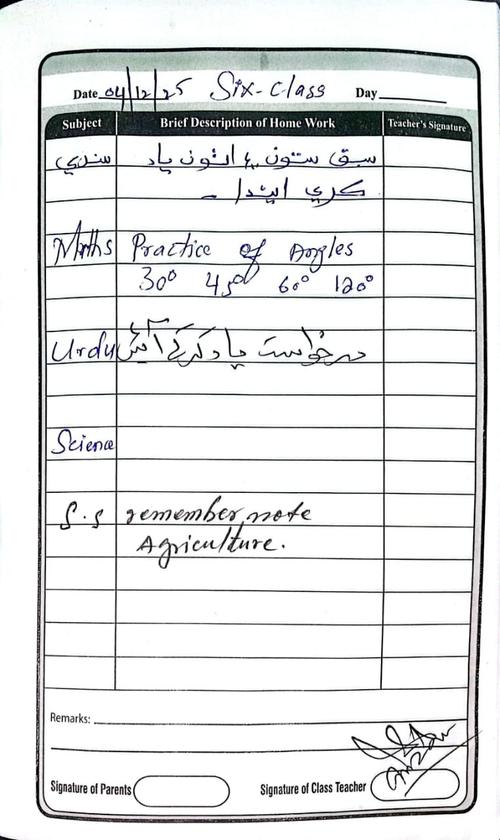 Date 04/12/25 Six-Class Day
Subject Brief Description of Home Work Teacher's Signature
سنڌي سبق ستون ۽ اٺون ياد
ڪري ايندا -
Maths Practice of Angles
30° 45° 60° 120°
Urdu درخواست یاد کرکے آئیں
Science
S.S remember note
Agriculture.
Remarks:
Signature of Parents Signature of Class Teacher